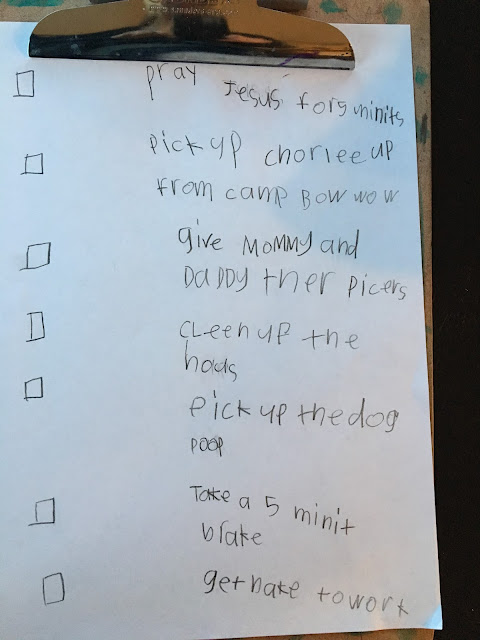 pray Jesus for 9 minits
pick up chorlee up
from camp Bow wow
give MoMMy and
DaDDy ther picers
cLeen up the
hous
pick up the dog
poop
Take a 5 minit
brake
get bake to work